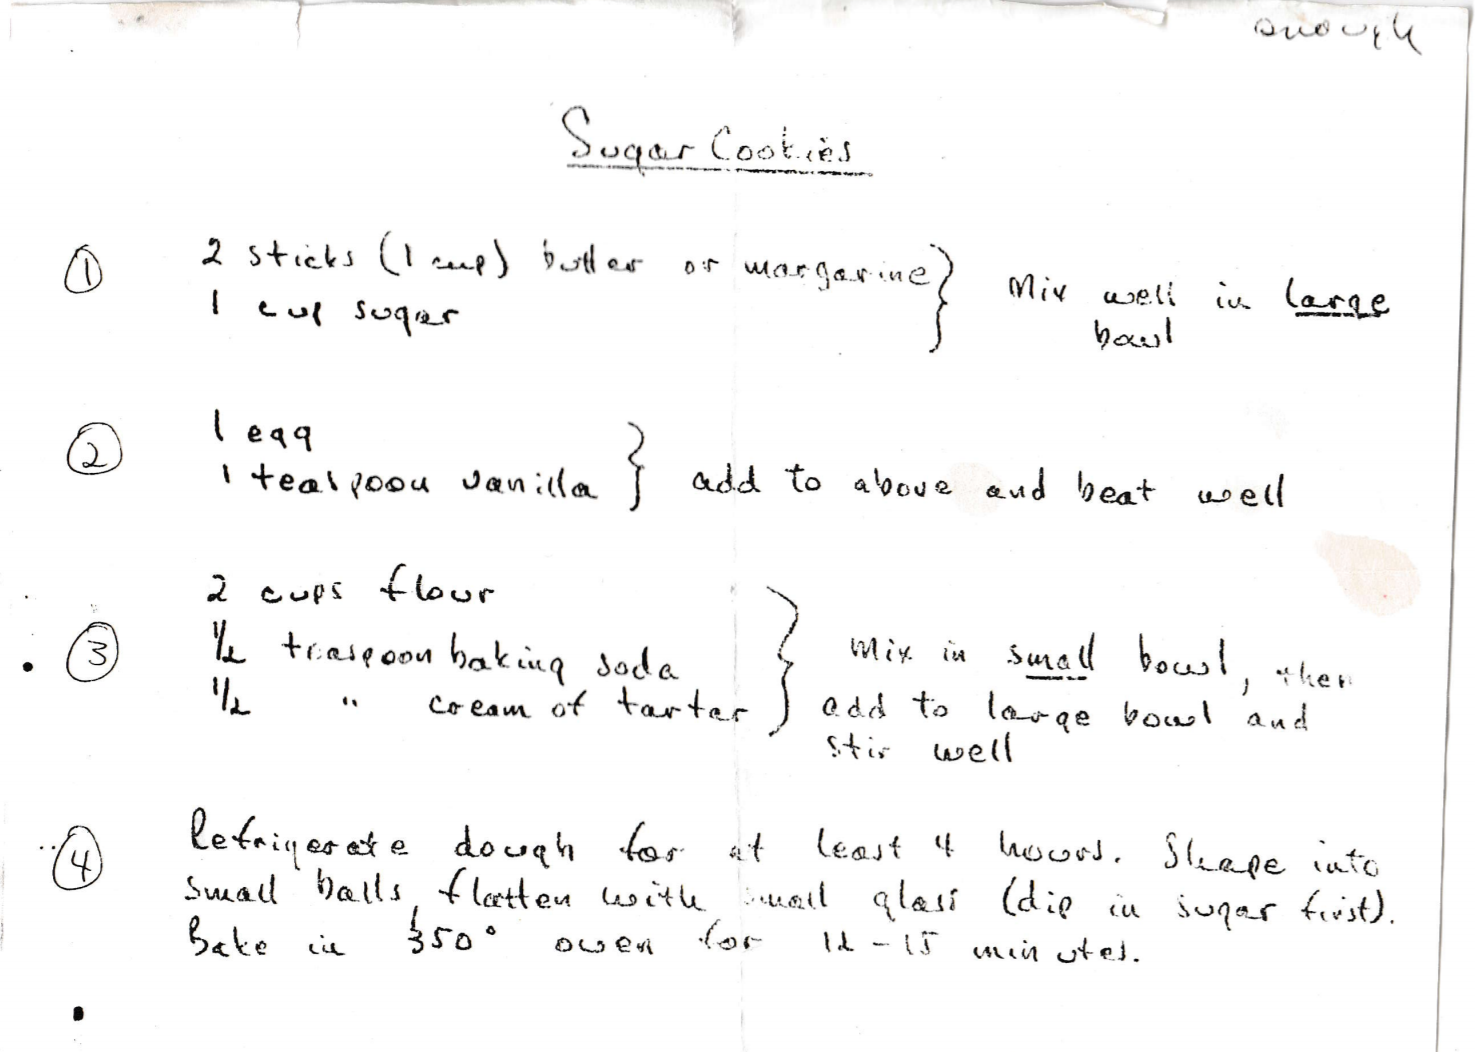 enough
Sugar Cookies
① 2 sticks (1 cup) butter or margarine } Mix well in large
1 cup sugar bowl
② 1 egg
1 teaspoon vanilla } add to above and beat well
③ 2 cups flour
1/2 teaspoon baking soda } Mix in small bowl, then
1/2 " cream of tartar add to large bowl and
stir well
④ Refrigerate dough for at least 4 hours. Shape into
small balls, flatten with small glass (dip in sugar first).
Bake in 350° oven for 12-15 minutes.